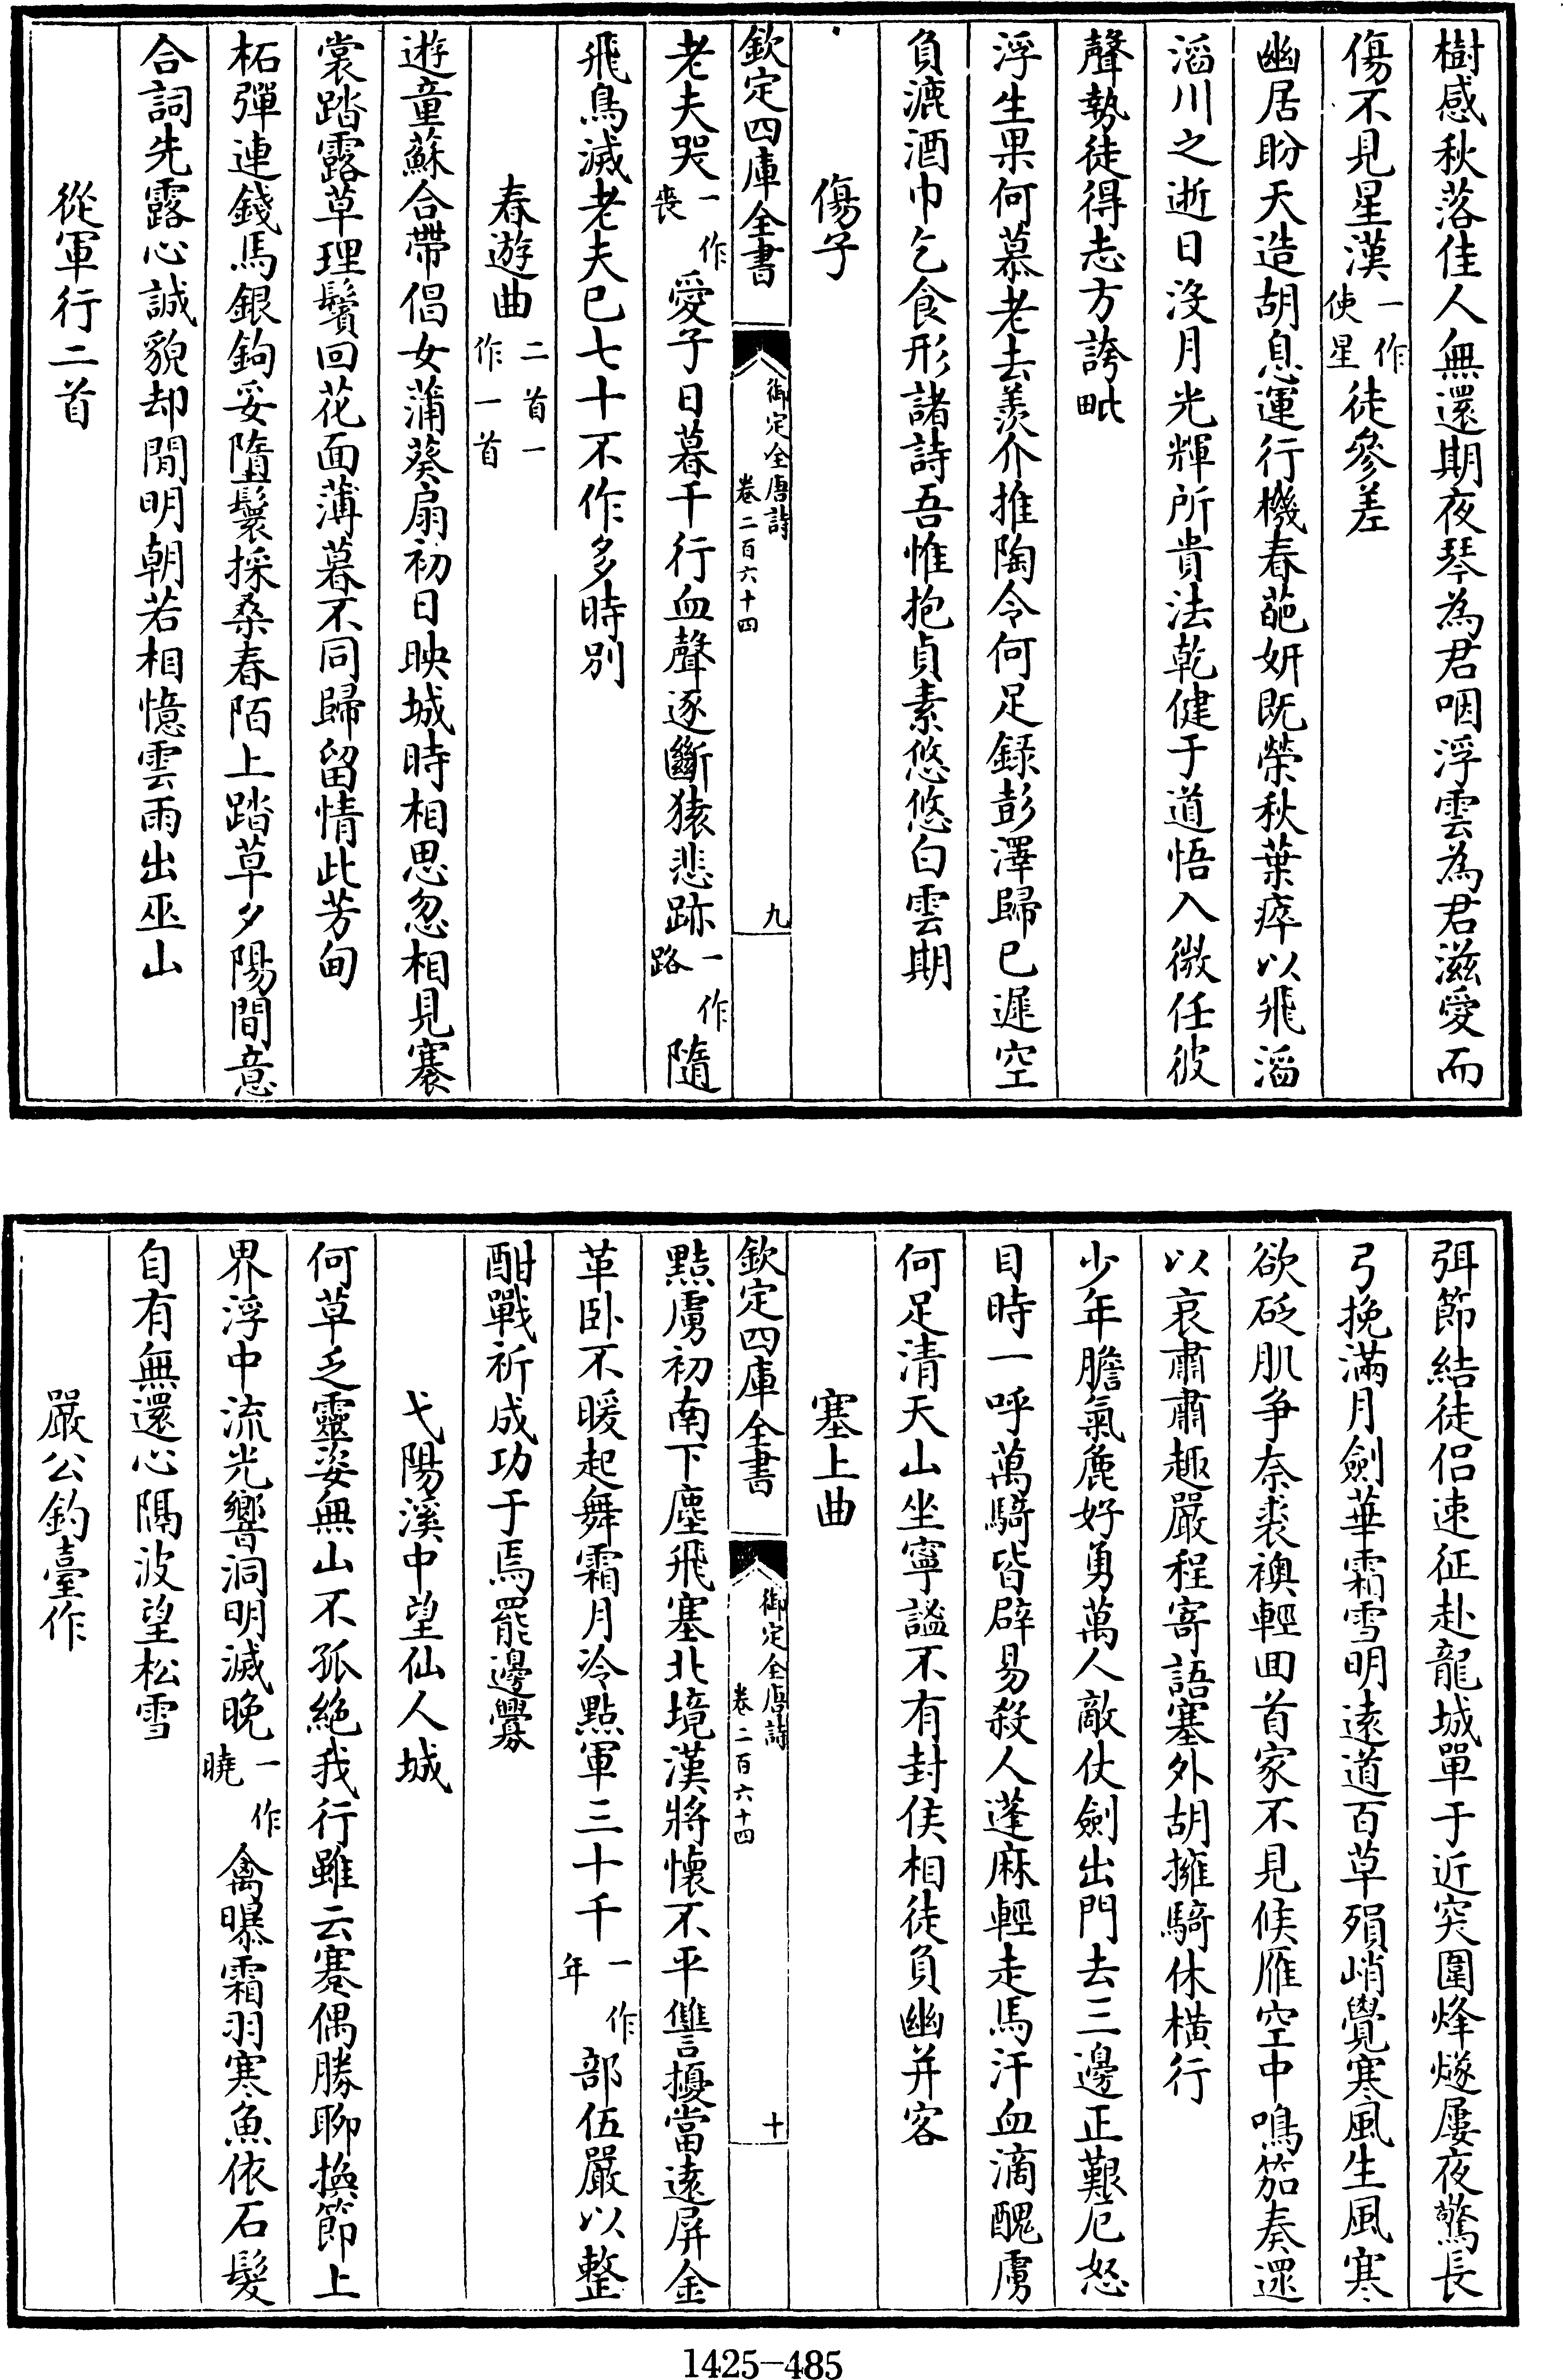 樹感秋落佳人無還期夜琴為君咽浮雲為君滋愛而
傷不見星漢一作使星徒參差
幽居盼天造胡息運行機春葩妍既榮秋葉瘁以飛滔
滔川之逝日沒月光輝所貴法乾健于道悟入微任彼
聲勢徒得志方誇毗
浮生果何慕老去羨介推陶令何足錄彭澤歸已遲空
負漉酒巾乞食形諸詩吾惟抱貞素悠悠白雲期
傷子
欽定四庫全書
御定全唐詩
卷二百六十四
九
老夫哭一作喪愛子日暮千行血聲逐斷猿悲跡一作路隨
飛鳥滅老夫已七十不作多時別
春遊曲二首一作一首
遊童蘇合帶倡女蒲葵扇初日映城時相思忽相見褰
裳踏露草理鬢回花面薄暮不同歸留情此芳甸
柘彈連錢馬銀鉤妥墮鬟採桑春陌上踏草夕陽間意
合詞先露心誠貌却閒明朝若相憶雲雨出巫山
從軍行二首
弭節結徒侶速征赴龍城單于近突圍烽燧屢夜驚長
弓挽滿月劍華霜雪明遠道百草殞峭覺寒風生風寒
欲砭肌争奈裘襖輕回首家不見候雁空中鳴笳奏還
以哀肅肅趣嚴程寄語塞外胡擁騎休橫行
少年膽氣麄好勇萬人敵仗劍出門去三邊正艱厄怒
目時一呼萬騎皆辟易殺人蓬麻輕走馬汗血滴醜虜
何足清天山坐寧謐不有封侯相徒負幽并客
塞上曲
欽定四庫全書
御定全唐詩
卷二百六十四
十
黠虜初南下塵飛塞北境漢將懷不平讐擾當遠屏金
革卧不暖起舞霜月冷點軍三十千一作年部伍嚴以整
酣戰祈成功于焉罷邊釁
弋陽溪中望仙人城
何草乏靈姿無山不孤絶我行雖云蹇偶勝聊換節上
界浮中流光響洞明滅晚一作曉禽曝霜羽寒魚依石髮
自有無還心隔波望松雪
嚴公釣臺作
1425-485